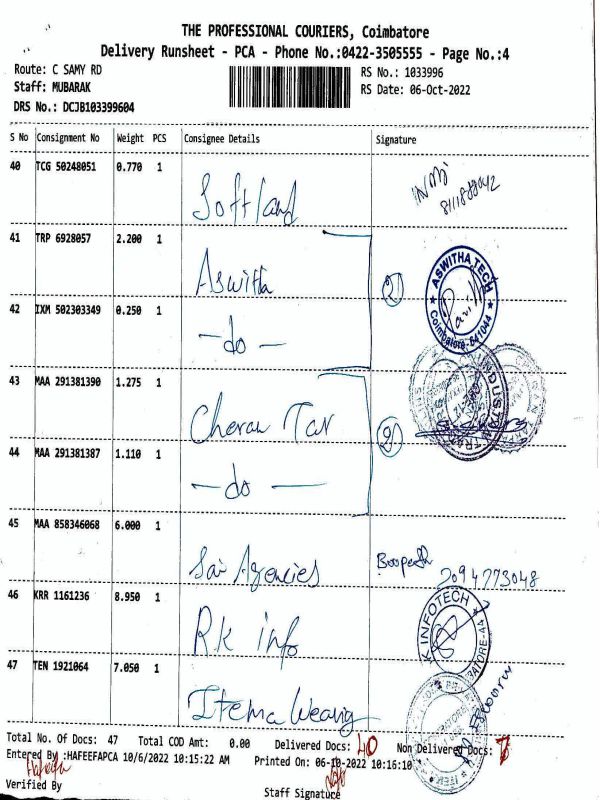 THE PROFESSIONAL COURIERS, Coimbatore
Delivery Runsheet - PCA - Phone No.:0422-3505555 - Page No.:4
Route: C SAMY RD
Staff: MUBARAK
DRS No.: DCJB103399604
RS No.: 1033996
RS Date: 06-Oct-2022
S No Consignment No Weight PCS Consignee Details Signature
40 TCG 50248051 0.770 1 Softland
8111888042
41 TRP 6928057 2.200 1 Aswitha
2
ASWITHA TECH
Coimbatore-641044
42 IXM 502303349 0.250 1 -do-
43 MAA 291381390 1.275 1 Cheran Tar
2
44 MAA 291381387 1.110 1 -do-
45 MAA 858346068 6.000 1 Sai Agencies
Boopesh
2094773048
46 KRR 1161236 8.950 1 Rk info
K INFOTECH
47 TEN 1921064 7.050 1 Itema Weaving
Total No. Of Docs: 47 Total COD Amt: 0.00 Delivered Docs: 40 Non Delivered Docs: 7
Entered By :HAFEEFAPCA 10/6/2022 10:15:22 AM Printed On: 06-10-2022 10:16:10
Verified By
Staff Signature